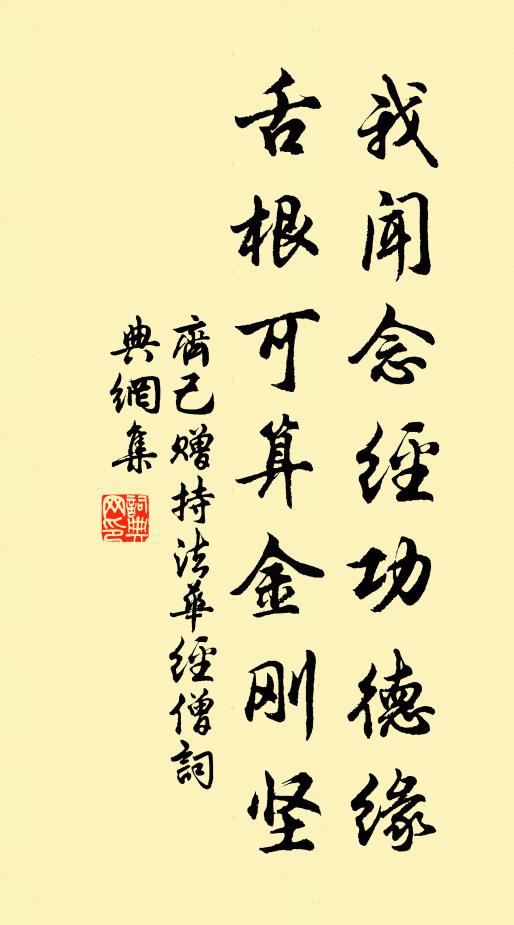 我闻念經功德缘
舌根可算金刚坚
齊己赠持法華經僧詞
典網集
詞典网印